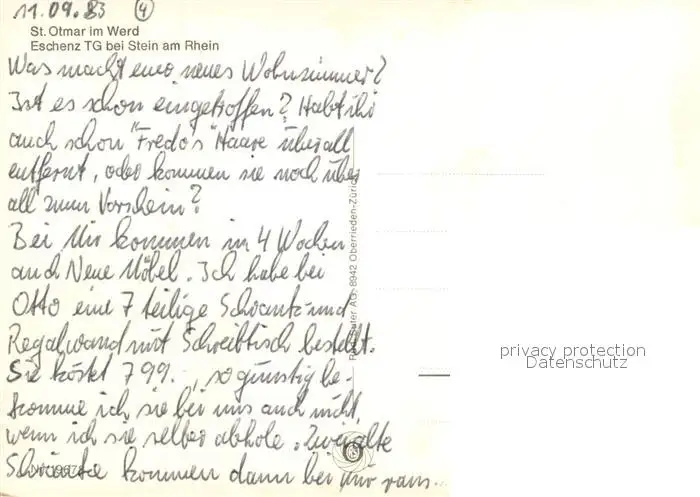 11.09.83 4
St. Otmar im Werd
Eschenz TG bei Stein am Rhein
Was macht euer neues Wohnzimmer?
Ist es schon eingetroffen? Habt ihr
auch schon "Fredo's" Haare überall
entfernt, oder kommen sie noch über
all zum Vorschein?
Bei Mir kommen in 4 Wochen
auch Neue Möbel. Ich habe bei
Otto eine 7 teilige Schrank- und
Regalwand mit Schreibtisch bestellt.
Sie kostet 799.-, so günstig be-
komme ich sie bei uns auch nicht,
wenn ich sie selber abhole. Zwei alte
Schränke kommen dann bei mir raus...
AG, 8942 Oberrieden-Zürich
privacy protection
Datenschutz